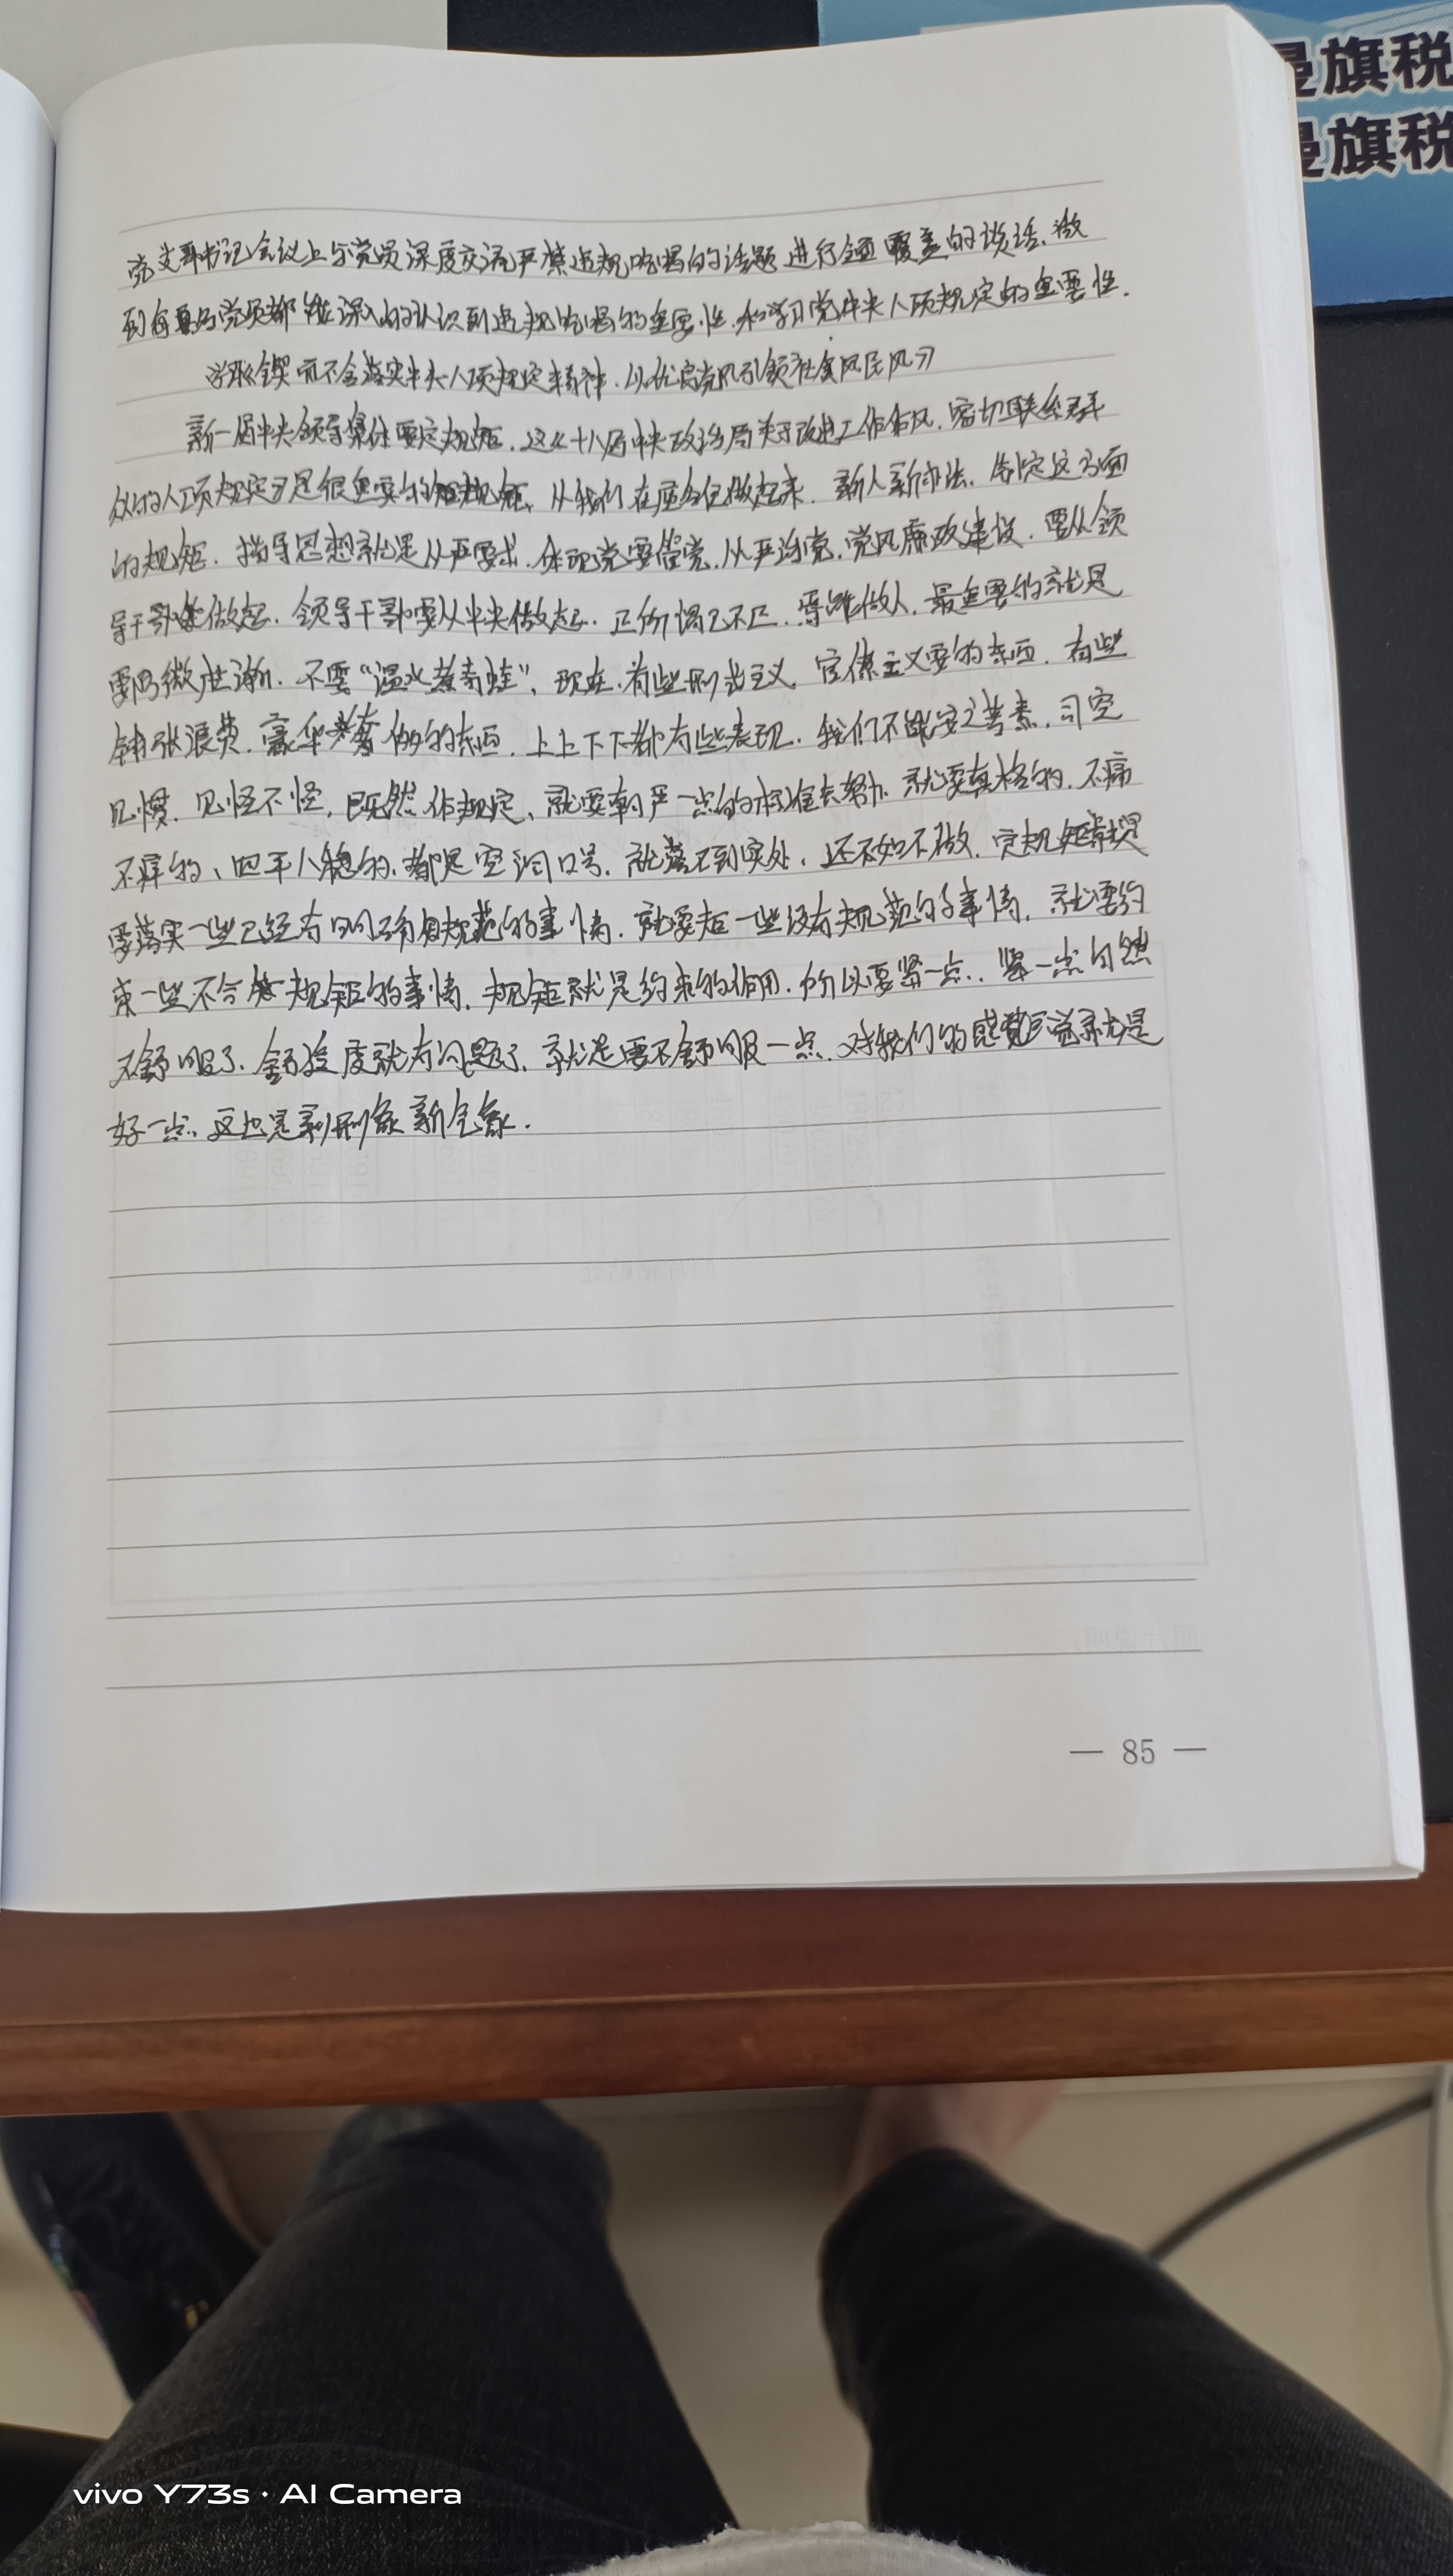 曼旗税
曼旗税
党支部书记会议上与党员深度交流严禁违规吃喝的话题进行全面覆盖的谈话,做
到每名党员都能深入的认识到违规吃喝的重要性,和学习党中央八项规定的重要性.
学习《锲而不舍落实中央八项规定精神,以优良党风引领社会风民风》
新一届中央领导集体要定规矩,这《十八届中央政治局关于改进工作作风,密切联系群
众的八项规定》是很重要的规矩,从我们在座各位做起来,新人新办法,制定这方面
的规矩,指导思想就是从严要求,体现党要管党,从严治党,党风廉政建设,要从领
导干部做起,领导干部要从中央做起.正所惕己不正,焉能做人,最重要的就是
要防微杜渐,不要“温水煮青蛙”,现在,有些形式主义,官僚主义的东西,有些
铺张浪费,豪华奢侈的东西,上上下下都有些表现,我们不能安之若素,司空
见惯,见怪不怪,既然作规定,就要朝严一点的标准去努力,就要真格的,不痛
不痒的、四平八稳的,都是空洞口号,就落不到实处,还不如不做,定规矩就是
要落实一些已经有明确规范的事情,就要起一些没有规范的事情,就要约
束一些不合规矩的事情,规矩就是约束的作用,所以要紧一点,紧一点自然
不舒服了,舒适度就有问题了,就是要不舒服一点,对我们的感觉就是
好一点,这也是新形象新气象.
— 85 —
vivo Y73s · AI Camera